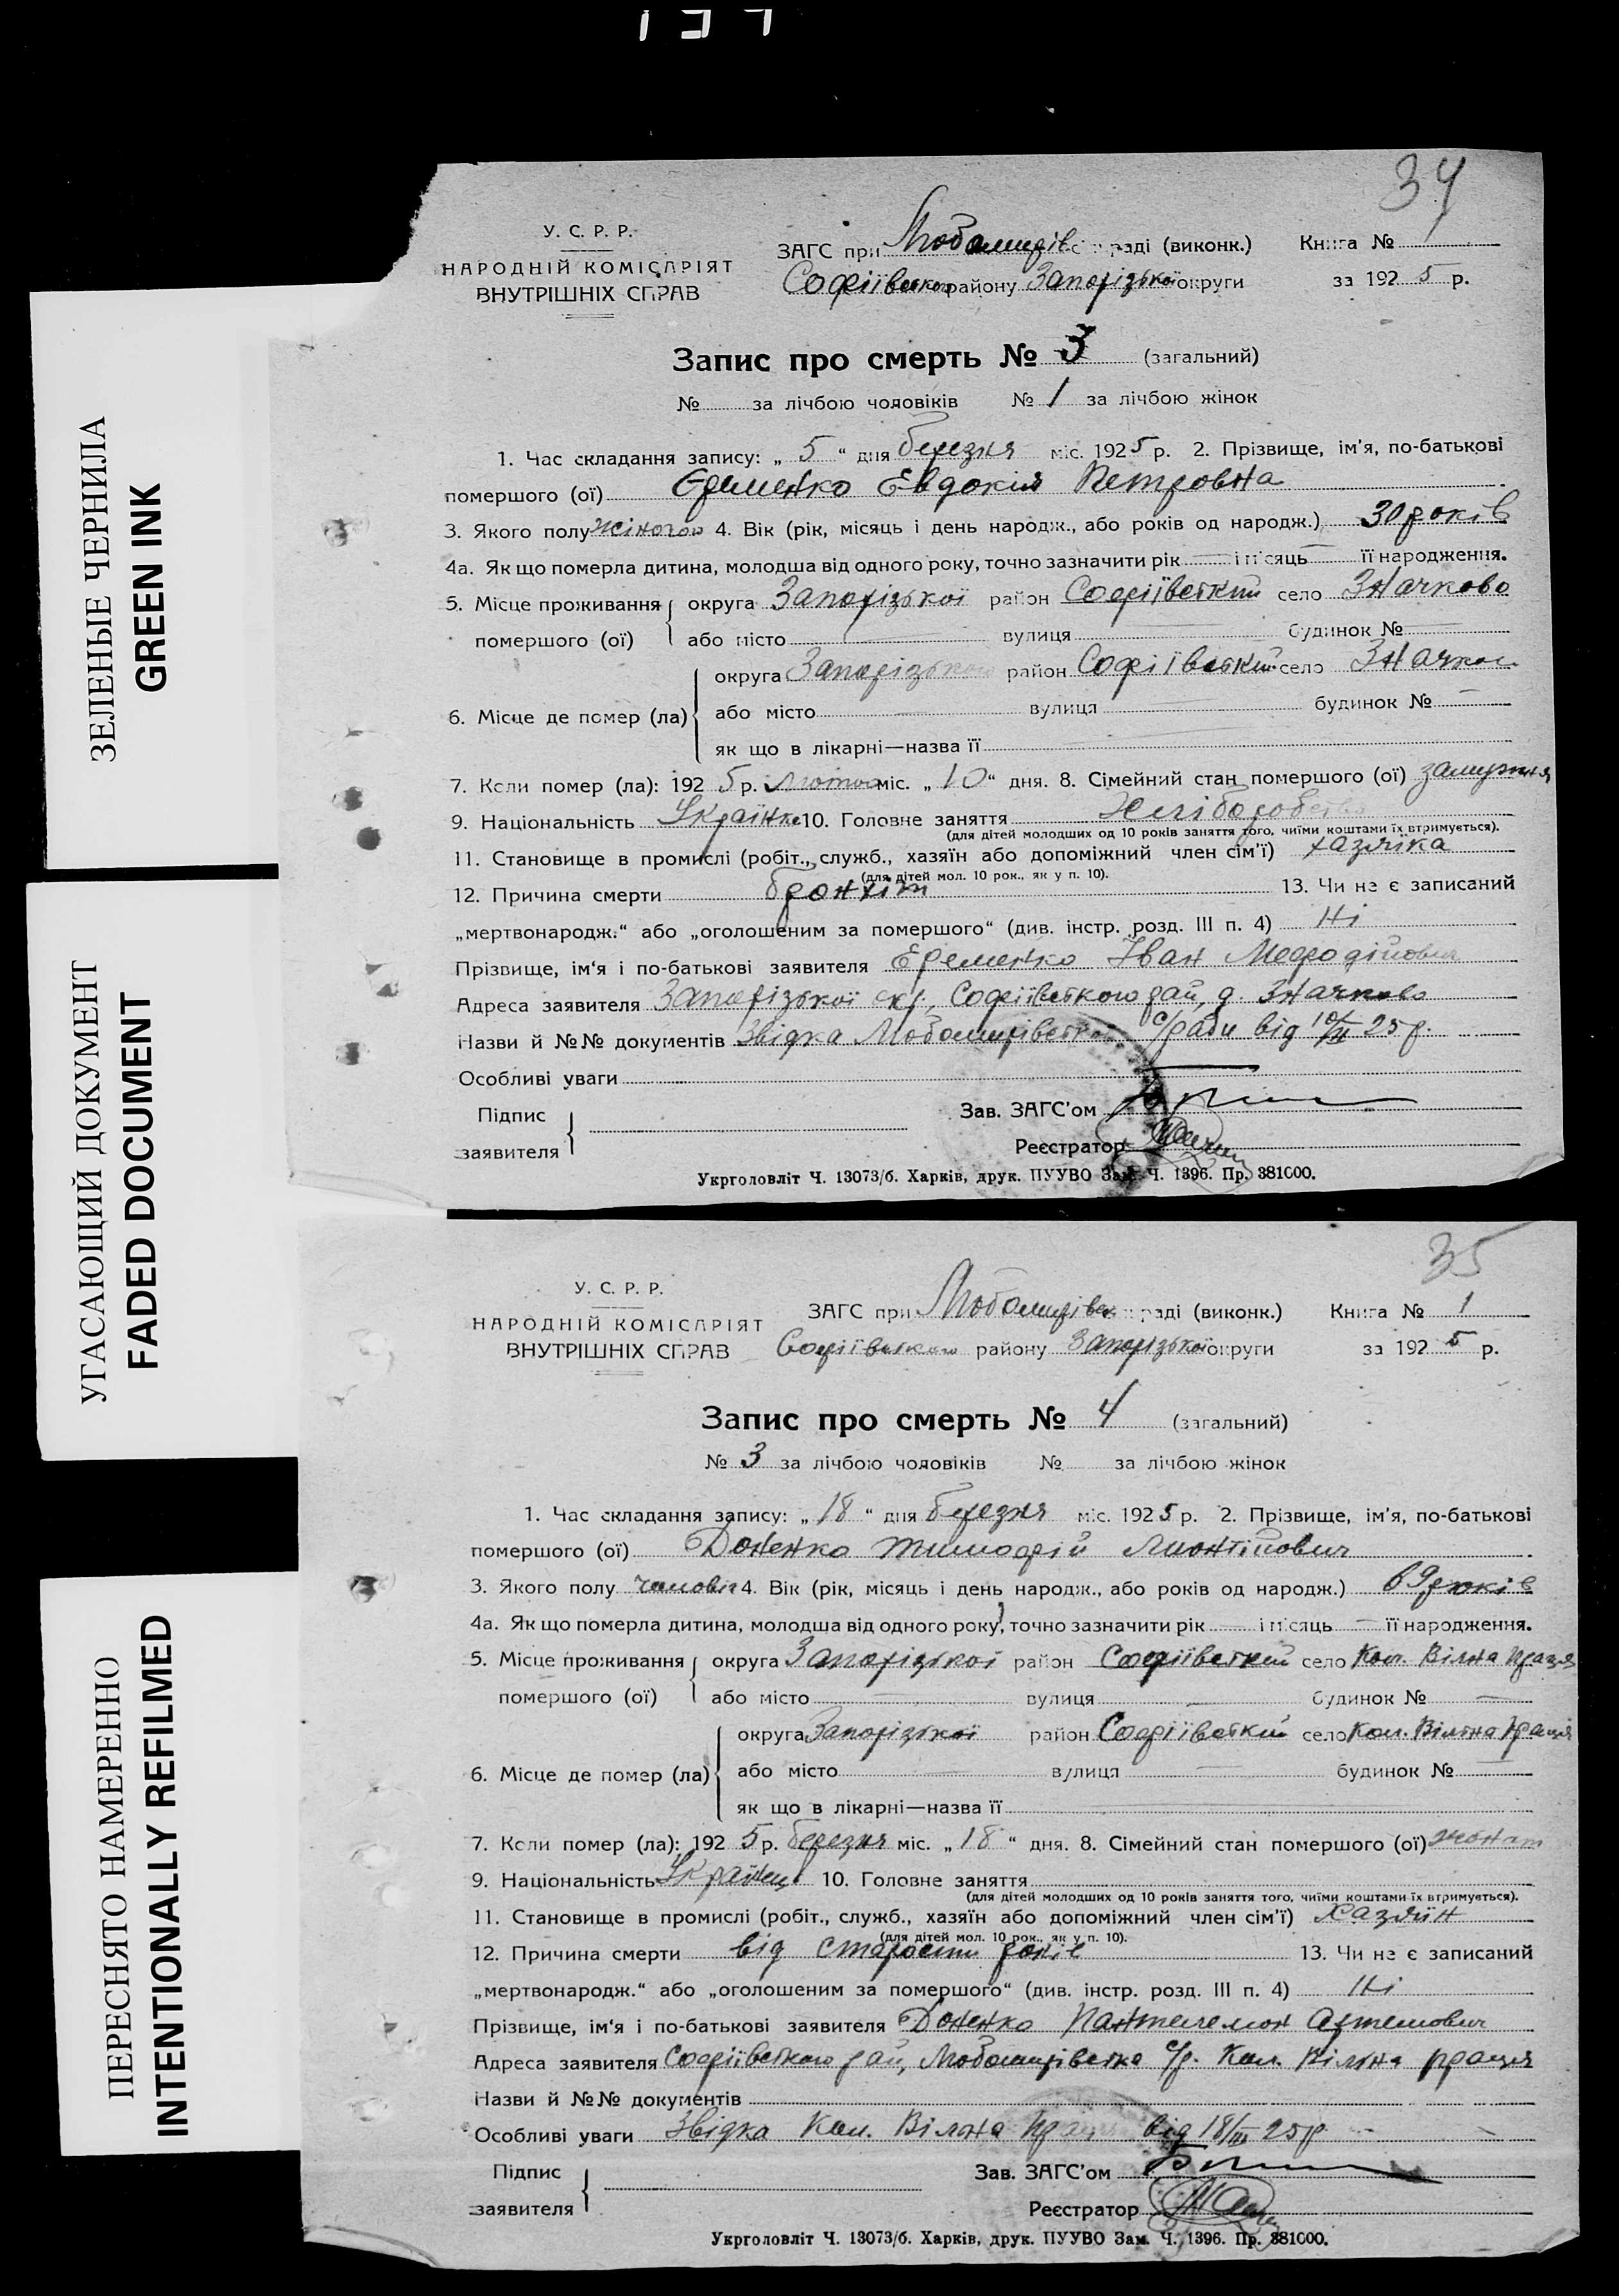 ЗЕЛЕНЫЕ ЧЕРНИЛА
GREEN INK
УГАСАЮЩИЙ ДОКУМЕНТ
FADED DOCUMENT
ПЕРЕСНЯТО НАМЕРЕННО
INTENTIONALLY REFILMED
34
У. С. Р. Р.
НАРОДНІЙ КОМІСАРІЯТ
ВНУТРІШНІХ СПРАВ
ЗАГС при Любомирівс раді (виконк.) Книга №
Софіївського району Запорізької округи за 1925 р.
Запис про смерть № 3 (загальний)
№ за лічбою чоловіків № 1 за лічбою жінок
1. Час складання запису: „ 5 “ дня березня міс. 1925 р. 2. Прізвище, ім’я, по-батькові
помершого (ої) Єременко Евдокія Петровна
3. Якого полу жіночого 4. Вік (рік, місяць і день народж., або років од народж.) 30 років
4а. Як що померла дитина, молодша від одного року, точно зазначити рік — і місяць — її народження.
5. Місце проживання помершого (ої) округа Запорізької район Софіївський село Значково
або місто — вулиця — будинок № —
6. Місце де помер (ла) округа Запорізької район Софіївський село Значков
або місто — вулиця — будинок № —
як що в лікарні—назва її
7. Коли помер (ла): 1925 р. лютого міс. „ 10 “ дня. 8. Сімейний стан помершого (ої) замужня
9. Національність Українка 10. Головне заняття Хліборобство
(для дітей молодших од 10 років заняття того, чиїми коштами їх втримується).
11. Становище в промислі (робіт., служб., хазяїн або допоміжний член сім’ї) хазяїка
(для дітей мол. 10 рок., як у п. 10).
12. Причина смерти бронхіт 13. Чи не є записаний
„мертвонародж.“ або „оголошеним за помершого“ (див. інстр. розд. III п. 4) Ні
Прізвище, ім’я і по-батькові заявителя Єременко Іван Мефодійович
Адреса заявителя Запорізької окр. Софіївського рай, д. Значково
Назви й №№ документів Звідка Любомирівської с/ради від 10/III 25 р.
Особливі уваги
Підпис заявителя
Зав. ЗАГС’ом
Реєстратор
Укрголовліт Ч. 13073/б. Харків, друк. ПУУВО Зам. Ч. 1396. Пр. 381000.
35
У. С. Р. Р.
НАРОДНІЙ КОМІСАРІЯТ
ВНУТРІШНІХ СПРАВ
ЗАГС при Любомирівск раді (виконк.) Книга № 1
Софіївського району Запорізької округи за 1925 р.
Запис про смерть № 4 (загальний)
№ 3 за лічбою чоловіків № за лічбою жінок
1. Час складання запису: „ 18 “ дня березня міс. 1925 р. 2. Прізвище, ім’я, по-батькові
помершого (ої) Доненко Тимофій Лионтійович
3. Якого полу чоловіч 4. Вік (рік, місяць і день народж., або років од народж.) 69 років
4а. Як що померла дитина, молодша від одного року, точно зазначити рік і місяць — її народження.
5. Місце проживання помершого (ої) округа Запорізької район Софіївський село Кол. Вільна Праця
або місто — вулиця — будинок № —
6. Місце де помер (ла) округа Запорізької район Софіївський село Кол. Вільна Праця
або місто — вулиця — будинок № —
як що в лікарні—назва її
7. Коли помер (ла): 1925 р. березня міс. „ 18 “ дня. 8. Сімейний стан помершого (ої) жонат
9. Національність Українец 10. Головне заняття
(для дітей молодших од 10 років заняття того, чиїми коштами їх втримується).
11. Становище в промислі (робіт., служб., хазяїн або допоміжний член сім’ї) Хазяїн
(для дітей мол. 10 рок., як у п. 10).
12. Причина смерти від старости років 13. Чи не є записаний
„мертвонародж.“ або „оголошеним за помершого“ (див. інстр. розд. III п. 4) Ні
Прізвище, ім’я і по-батькові заявителя Доненко Пантелемон Артемович
Адреса заявителя Софіївського рай, Любомирівська с/р. Кол. Вільна праця
Назви й №№ документів
Особливі уваги Звідка Кол. Вільна Праця від 18/III 25 р
Підпис заявителя
Зав. ЗАГС’ом
Реєстратор
Укрголовліт Ч. 13073/б. Харків, друк. ПУУВО Зам. Ч. 1396. Пр. 381000.